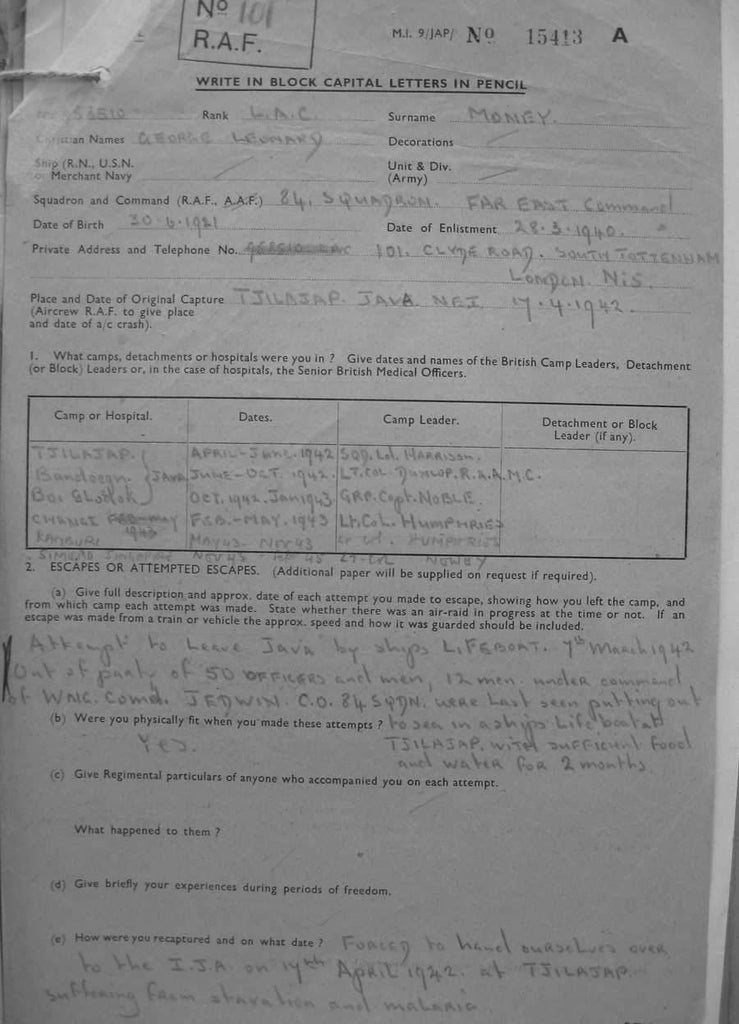 No 101
R.A.F.
M.I. 9/JAP/ No 15413 A
WRITE IN BLOCK CAPITAL LETTERS IN PENCIL
Rank L.A.C. Surname MONEY.
Christian Names GEORGE LEONARD Decorations
Ship (R.N., U.S.N. Unit & Div.
or Merchant Navy (Army)
Squadron and Command (R.A.F., A.A.F.) 84. SQUADRON. FAR EAST Command
Date of Birth 30.6.1921 Date of Enlistment 28.3.1940.
Private Address and Telephone No. 101. CLYDE ROAD. SOUTH TOTTENHAM
LONDON. N15.
Place and Date of Original Capture TJILAJAP. JAVA NEI 17.4.1942.
(Aircrew R.A.F. to give place
and date of a/c crash).
1. What camps, detachments or hospitals were you in ? Give dates and names of the British Camp Leaders, Detachment
(or Block) Leaders or, in the case of hospitals, the Senior British Medical Officers.
Camp or Hospital. Dates. Camp Leader. Detachment or Block
Leader (if any).
TJILAJAP. APRIL-June. 1942 SQD. Ld. HARRISON.
Bandoegn. JAVA JUNE-OCT. 1942. LT. COL DUNLOP. R.A.A.M.C.
Boi Glodok OCT. 1942. Jan 1943. GRP. Capt. NOBLE.
CHANGI FEB-MAY 1943 FEB.-MAY. 1943 Lt. Col. HUMPHRIES
KANBURI MAY 43- NOV 43 HUMPHRIES
SINGAPORE NOV 43 - 45 LT-COL NEWEY
2. ESCAPES OR ATTEMPTED ESCAPES. (Additional paper will be supplied on request if required).
(a) Give full description and approx. date of each attempt you made to escape, showing how you left the camp, and
from which camp each attempt was made. State whether there was an air-raid in progress at the time or not. If an
escape was made from a train or vehicle the approx. speed and how it was guarded should be included.
Attempt to Leave Java by ships LIFEBOAT. 7th March 1942
Out of party of 50 OFFICERS and men, 12 men. under command
of WNG. Comd. JEDWIN. C.O. 84 SQDN. were Last seen putting out
(b) Were you physically fit when you made these attempts ? to sea in a ships Life boat at
Yes. TJILAJAP. with sufficient food
and water for 2 months.
(c) Give Regimental particulars of anyone who accompanied you on each attempt.
What happened to them ?
(d) Give briefly your experiences during periods of freedom.
(e) How were you recaptured and on what date ? FORCED to hand ourselves over
to the I.J.A. on 17th April 1942. at TJILAJAP.
suffering from starvation and malaria.